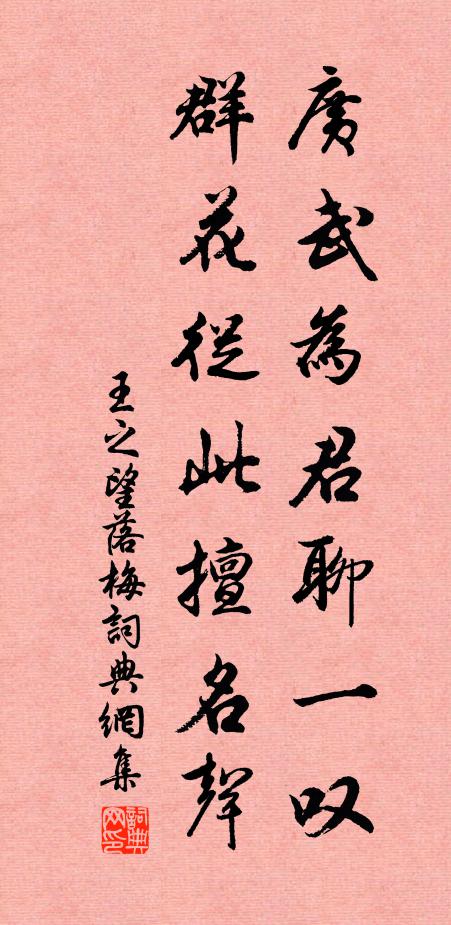 广武為君聊一叹
群花從此擅名聲
王之望落梅詞典網集
詞典網印